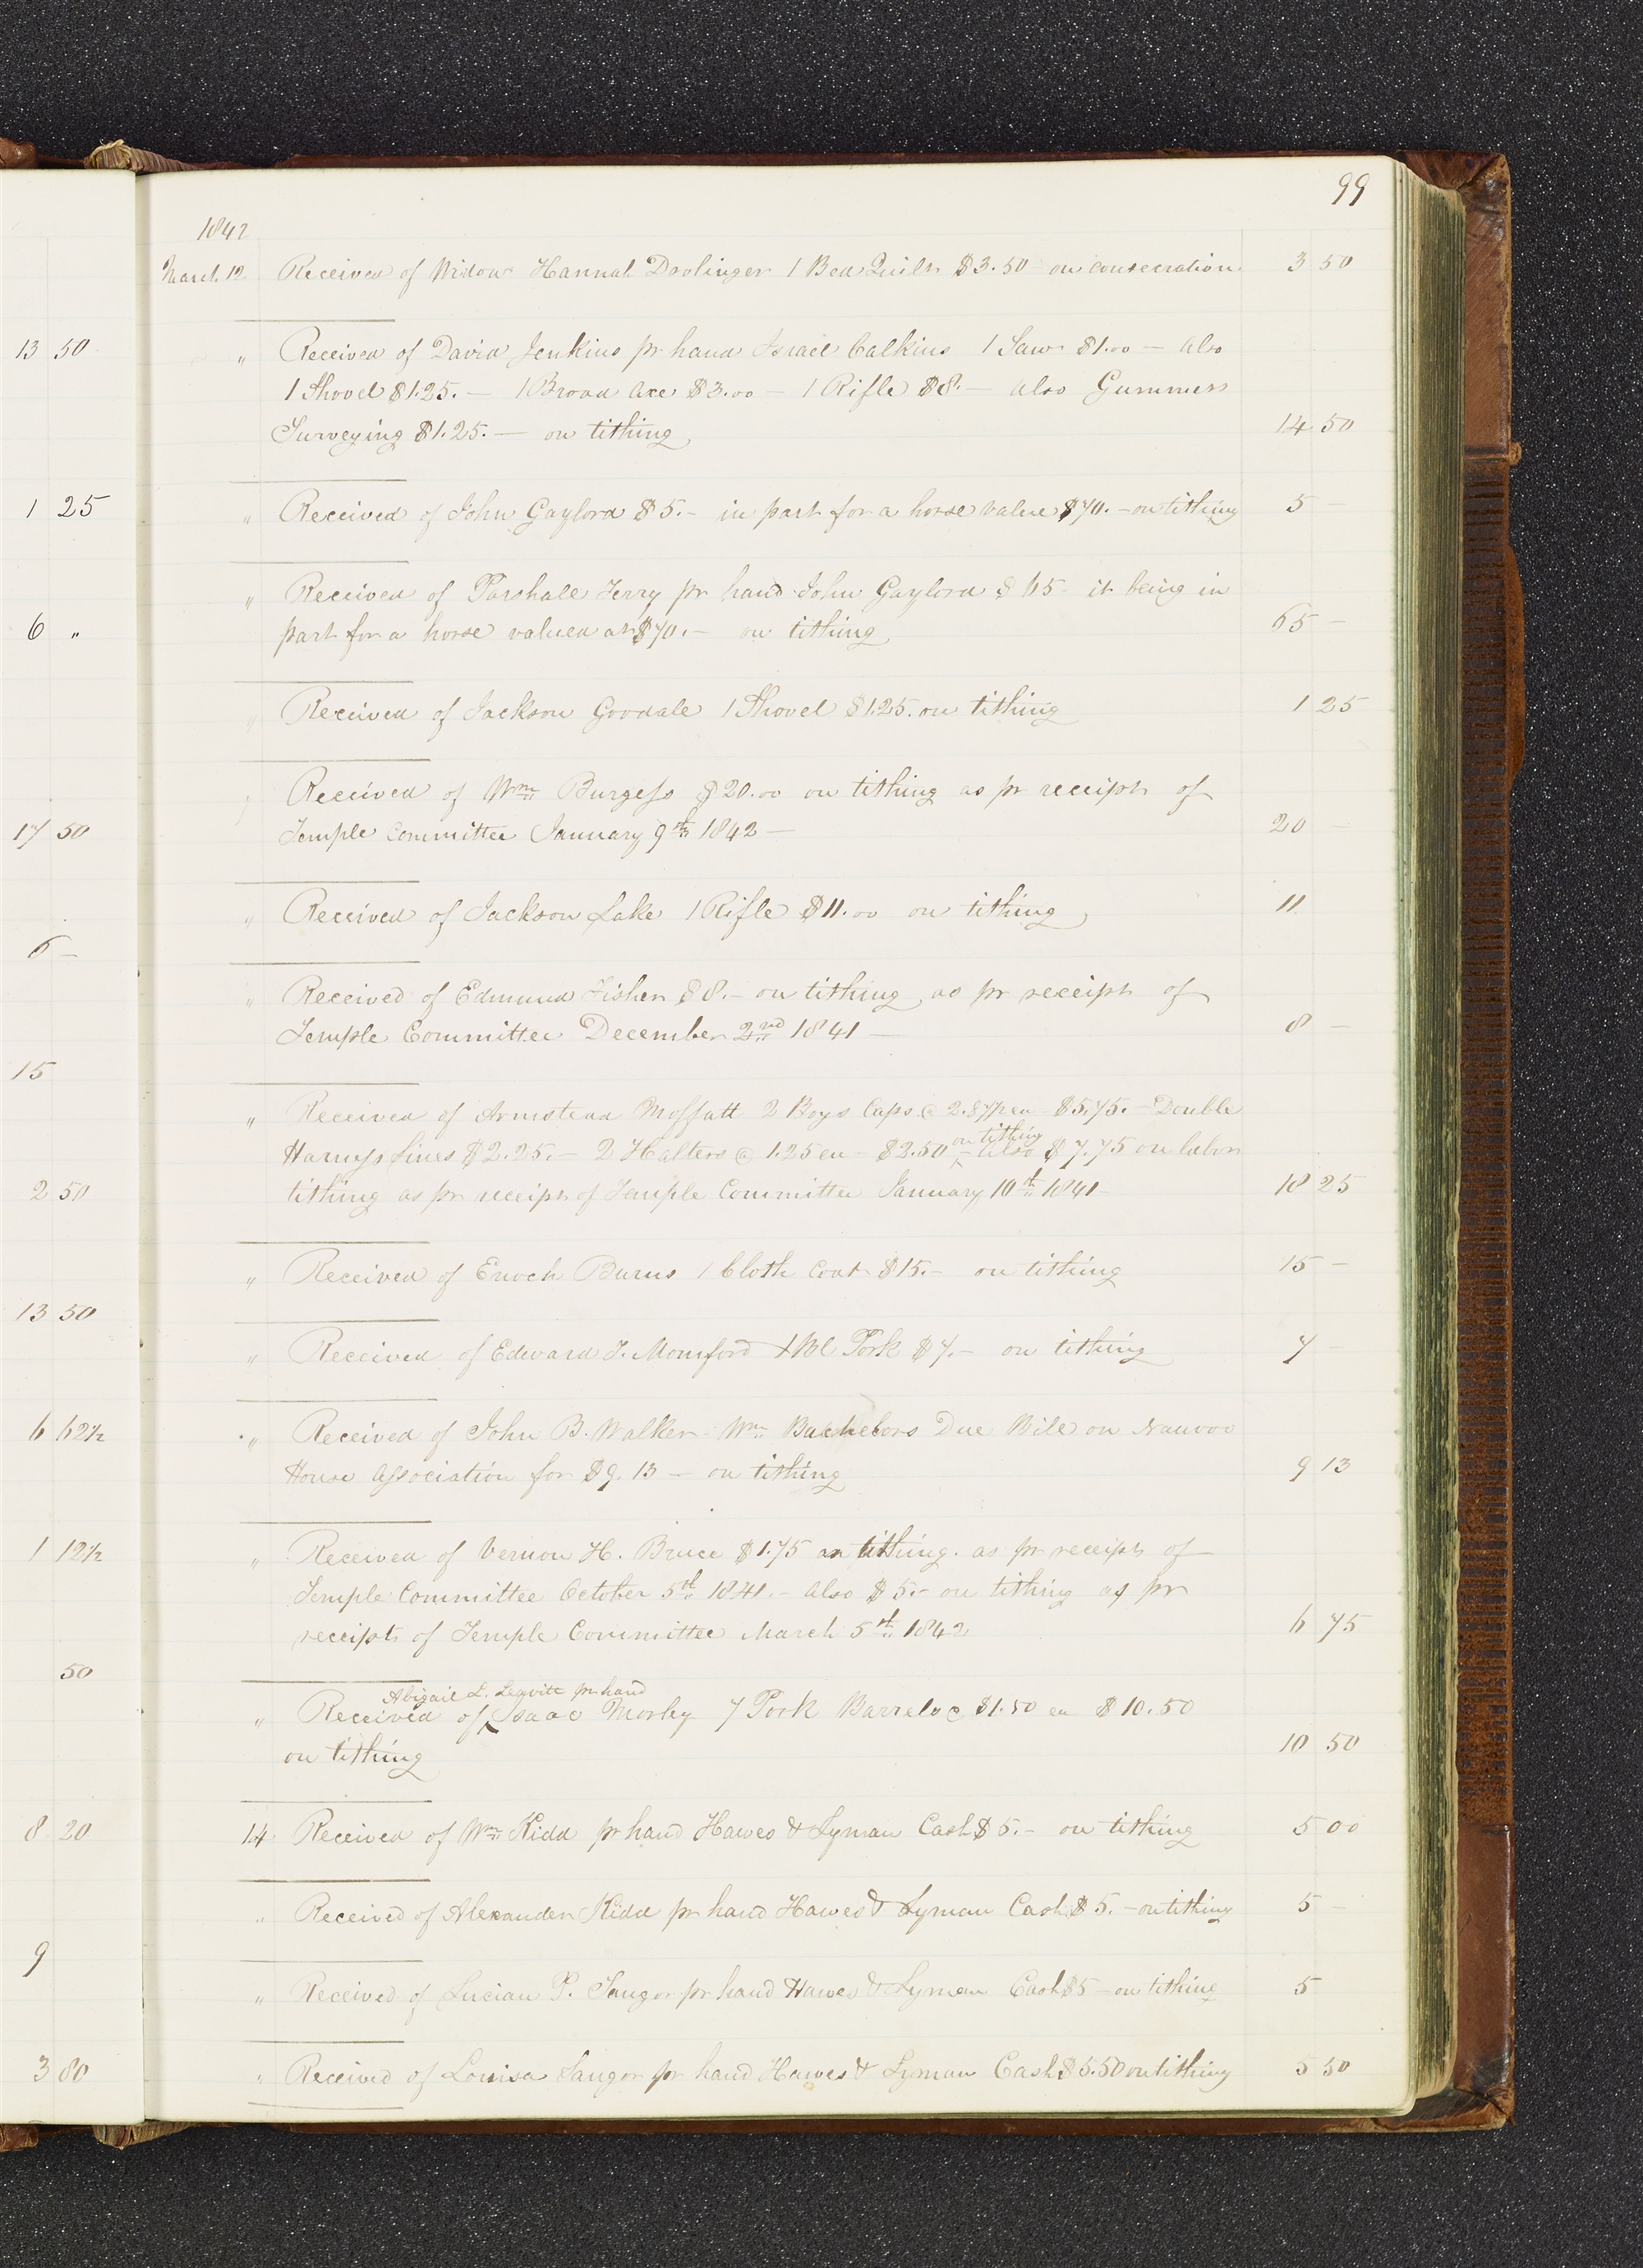 99
1842
March 12 Received of Widow Hannah Drolinger 1 Bed Quilt $3.50 on consecration 3 50
13 50
" Received of David Jenkins pr hand Israel Calkins 1 Saw $1.00 — also
1 Shovel $1.25. — 1 Broad Axe $3.00 — 1 Rifle $8. — also Gummers
Surveying $1.25. — on tithing 14 50
1 25
" Received of John Gaylord $5. — in part for a horse value $70. — on tithing 5 —
" Received of Parshall Terry pr hand John Gaylord $65 it being in
6 "
part for a horse valued at $70. — on tithing 65 —
" Received of Jackson Goodale 1 Shovel $1.25. on tithing 1 25
" Received of Wm Burgess $20.00 on tithing as pr receipt of
17 50
Temple Committee January 9th 1842 — 20 —
" Received of Jackson Lake 1 Rifle $11.00 on tithing 11
6 —
" Received of Edmund Fisher $8. — on tithing, as pr receipt of
Temple Committee December 2nd 1841 — 8 —
15
" Received of Armstead Moffatt 2 Boys Caps @ 2.87½ ea $5.75. — Double
on tithing
Harness Lines $2.25. — 2 Halters @ 1.25 ea — $2.50 ^ — also $7.75 on labor
2 50
tithing as pr receipt of Temple Committee January 10th 1841 — 18 25
" Received of Enoch Burns 1 Cloth Coat $15. — on tithing 15 —
13 50
" Received of Edward T. Momford 1 Bl Pork $7. — on tithing 7 —
6 62½
" Received of John B. Walker Wm Bachelors Due Bill on Nauvoo
House Association for $9.13 — on tithing 9 13
1 12½
" Received of Vernon H. Bruce $1.75 on tithing. as pr receipt of
Temple Committee October 5th 1841. — also $5. — on tithing as pr
receipt of Temple Committee March 5th 1842 6 75
50
Abigail L. Leavitt pr hand
" Received of ^ Isaac Morley 7 Pork Barrels @ $1.50 ea $10.50
on tithing 10 50
8 20
14 Received of Wm Kidd pr hand Hawes & Lyman Cash $5. — on tithing 5 00
" Received of Alexander Kidd pr hand Hawes & Lyman Cash $5. — on tithing 5 —
9
" Received of Lucian P. Sangor pr hand Hawes & Lyman Cash $5 — on tithing 5
3 80
" Received of Louisa Sangor pr hand Hawes & Lyman Cash $5.50 on tithing 5 50